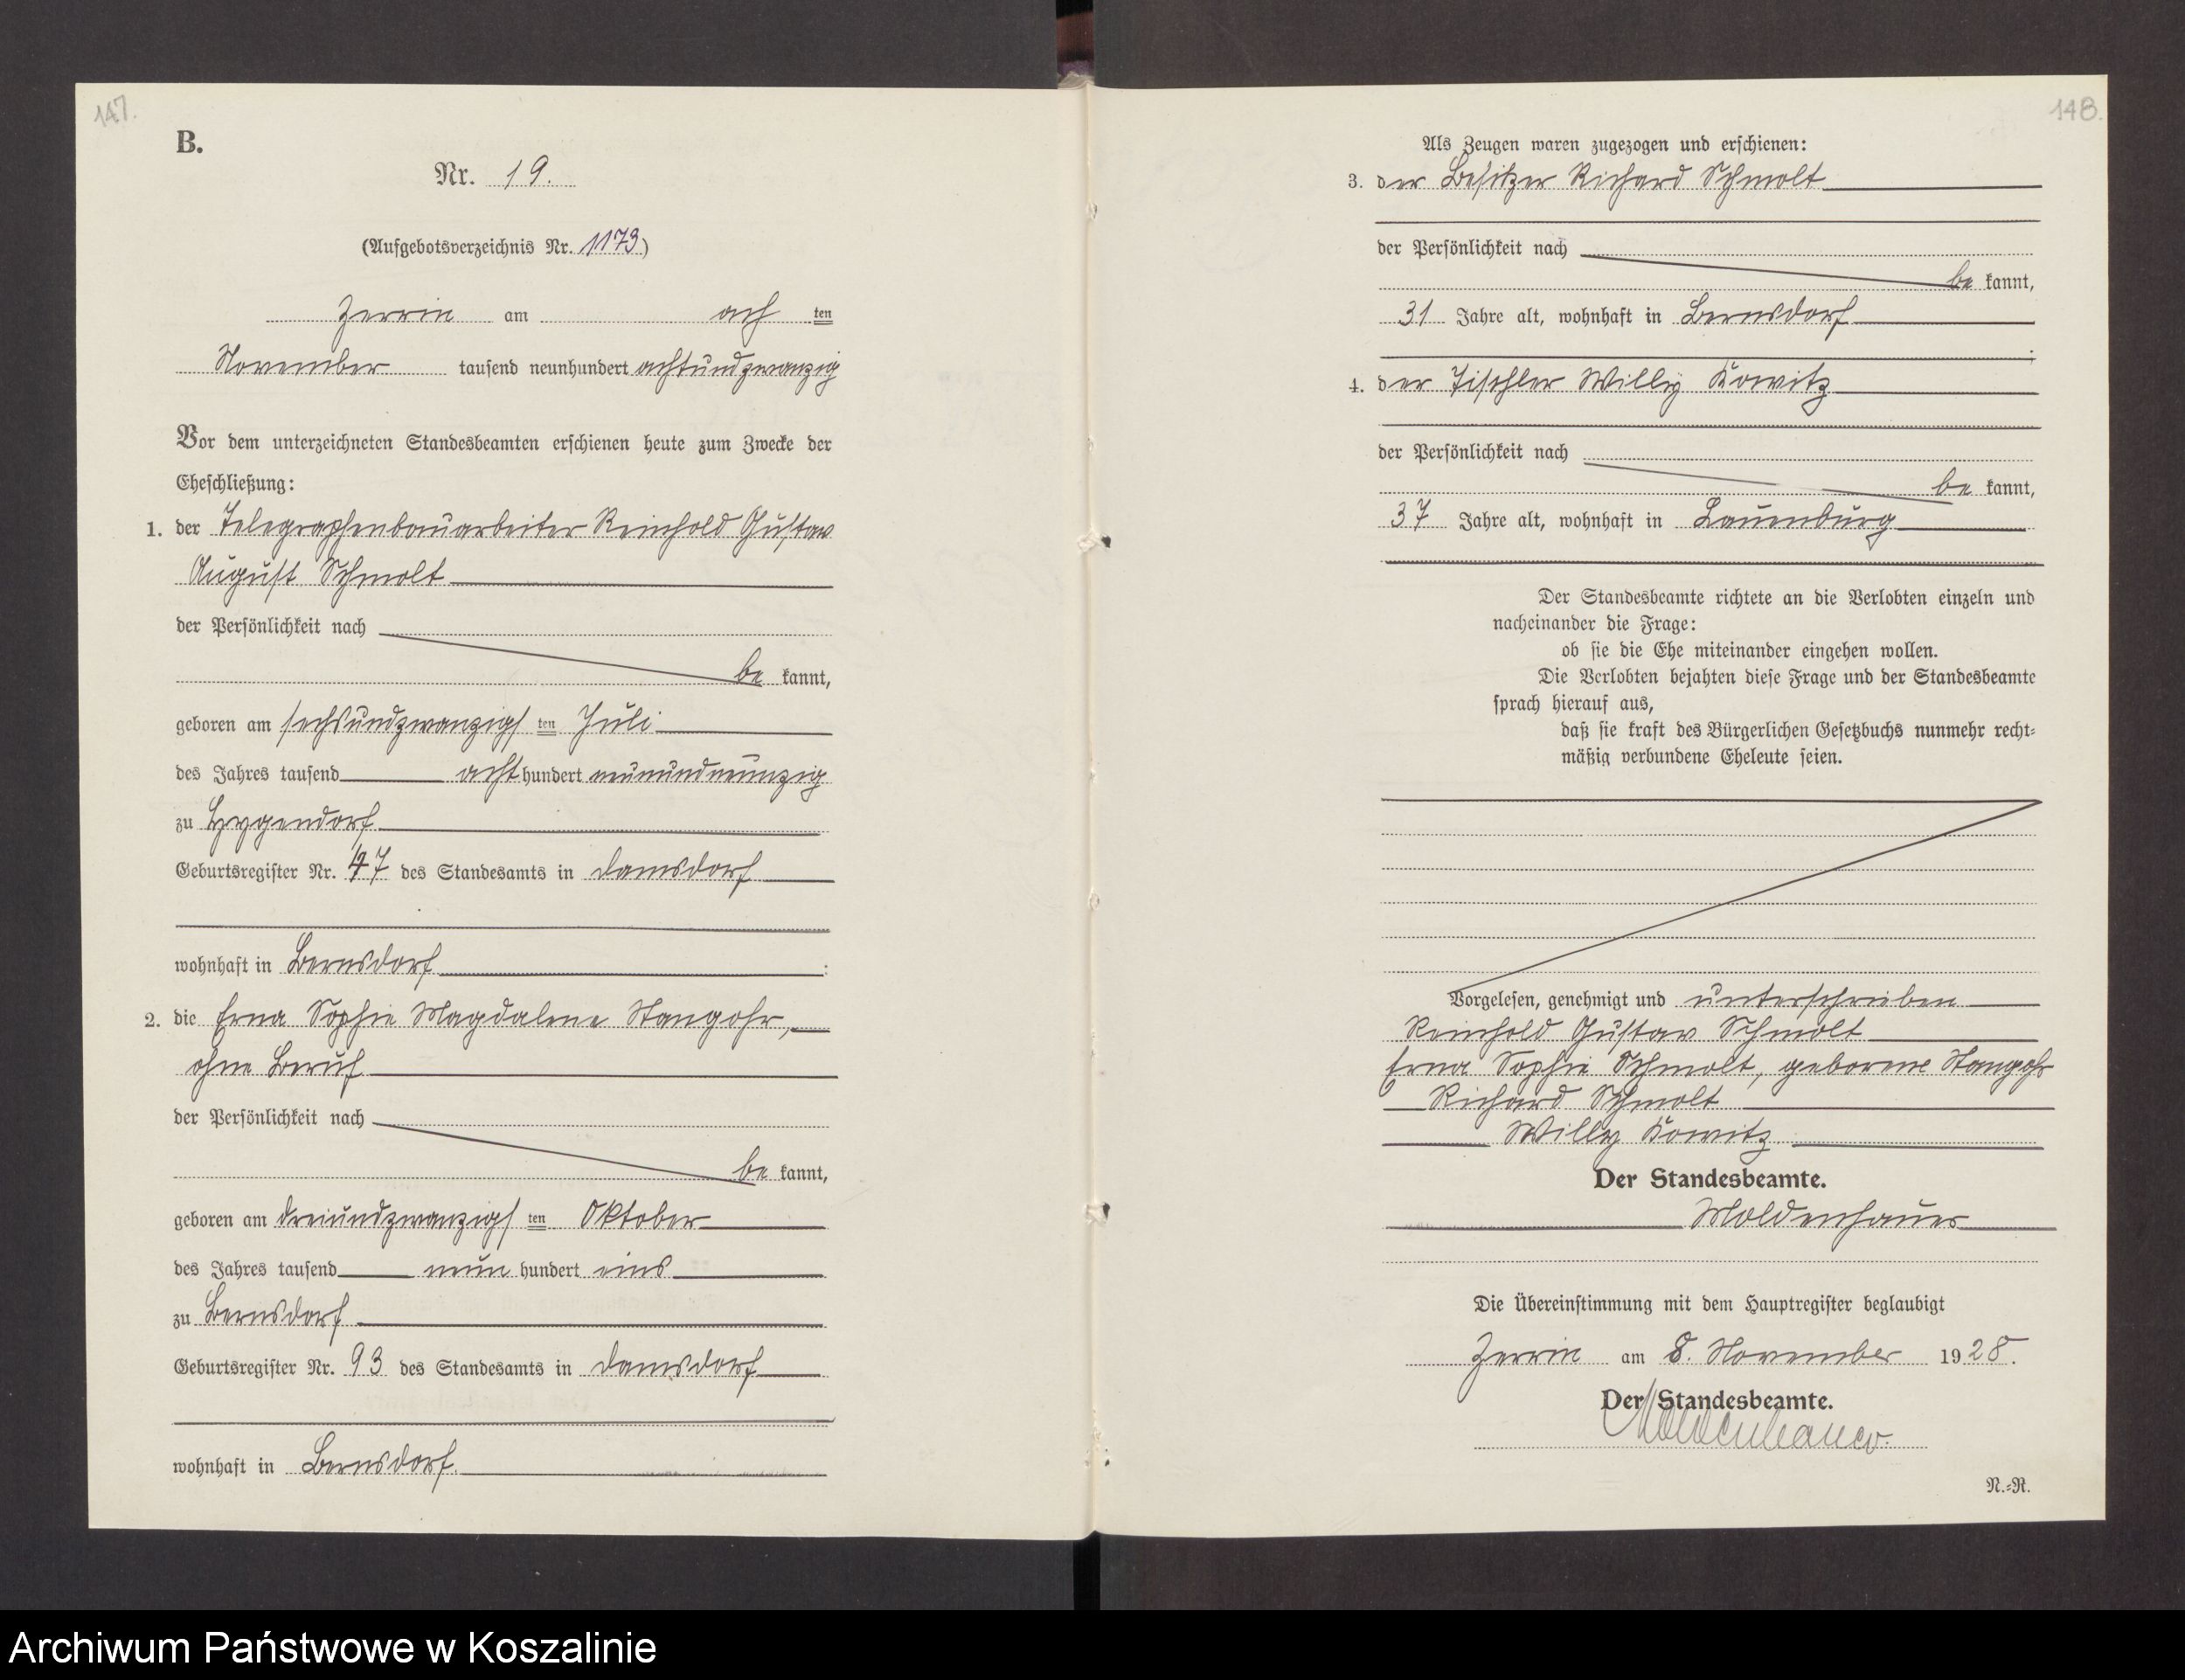 147.
B.
Nr. 19.
(Aufgebotsverzeichnis Nr. 1173)
Zerrin am ach ten
November tausend neunhundert achtundzwanzig
Vor dem unterzeichneten Standesbeamten erschienen heute zum Zwecke der
Eheschließung:
1. der Telegraphenbauarbeiter Reinhold Gustav
August Schmolt
der Persönlichkeit nach
be kannt,
geboren am sechsundzwanzigs ten Juli
des Jahres tausend acht hundert neunundneunzig
zu Hygendorf
Geburtsregister Nr. 47 des Standesamts in Damsdorf
wohnhaft in Bernsdorf :
2. die Erna Sophie Magdalene Stangohr,
ohne Beruf
der Persönlichkeit nach
be kannt,
geboren am dreiundzwanzigs ten Oktober
des Jahres tausend neun hundert eins
zu Bernsdorf
Geburtsregister Nr. 93 des Standesamts in Damsdorf
wohnhaft in Bernsdorf.
148.
Als Zeugen waren zugezogen und erschienen:
3. der Besitzer Richard Schmolt
der Persönlichkeit nach
be kannt,
31 Jahre alt, wohnhaft in Bernsdorf
;
4. der Tischler Willy Kowitz
der Persönlichkeit nach
be kannt,
37 Jahre alt, wohnhaft in Lauenburg
Der Standesbeamte richtete an die Verlobten einzeln und
nacheinander die Frage:
ob sie die Ehe miteinander eingehen wollen.
Die Verlobten bejahten diese Frage und der Standesbeamte
sprach hierauf aus,
daß sie kraft des Bürgerlichen Gesetzbuchs nunmehr recht-
mäßig verbundene Eheleute seien.
Vorgelesen, genehmigt und unterschrieben
Reinhold Gustav Schmolt
Erna Sophie Schmolt, geborene Stangohr
Richard Schmolt
Willy Kowitz
Der Standesbeamte.
Moldenhauer
Die Übereinstimmung mit dem Hauptregister beglaubigt
Zerrin am 8. November 1928.
Der Standesbeamte.
Moldenhauer.
N.-R.
Archiwum Państwowe w Koszalinie